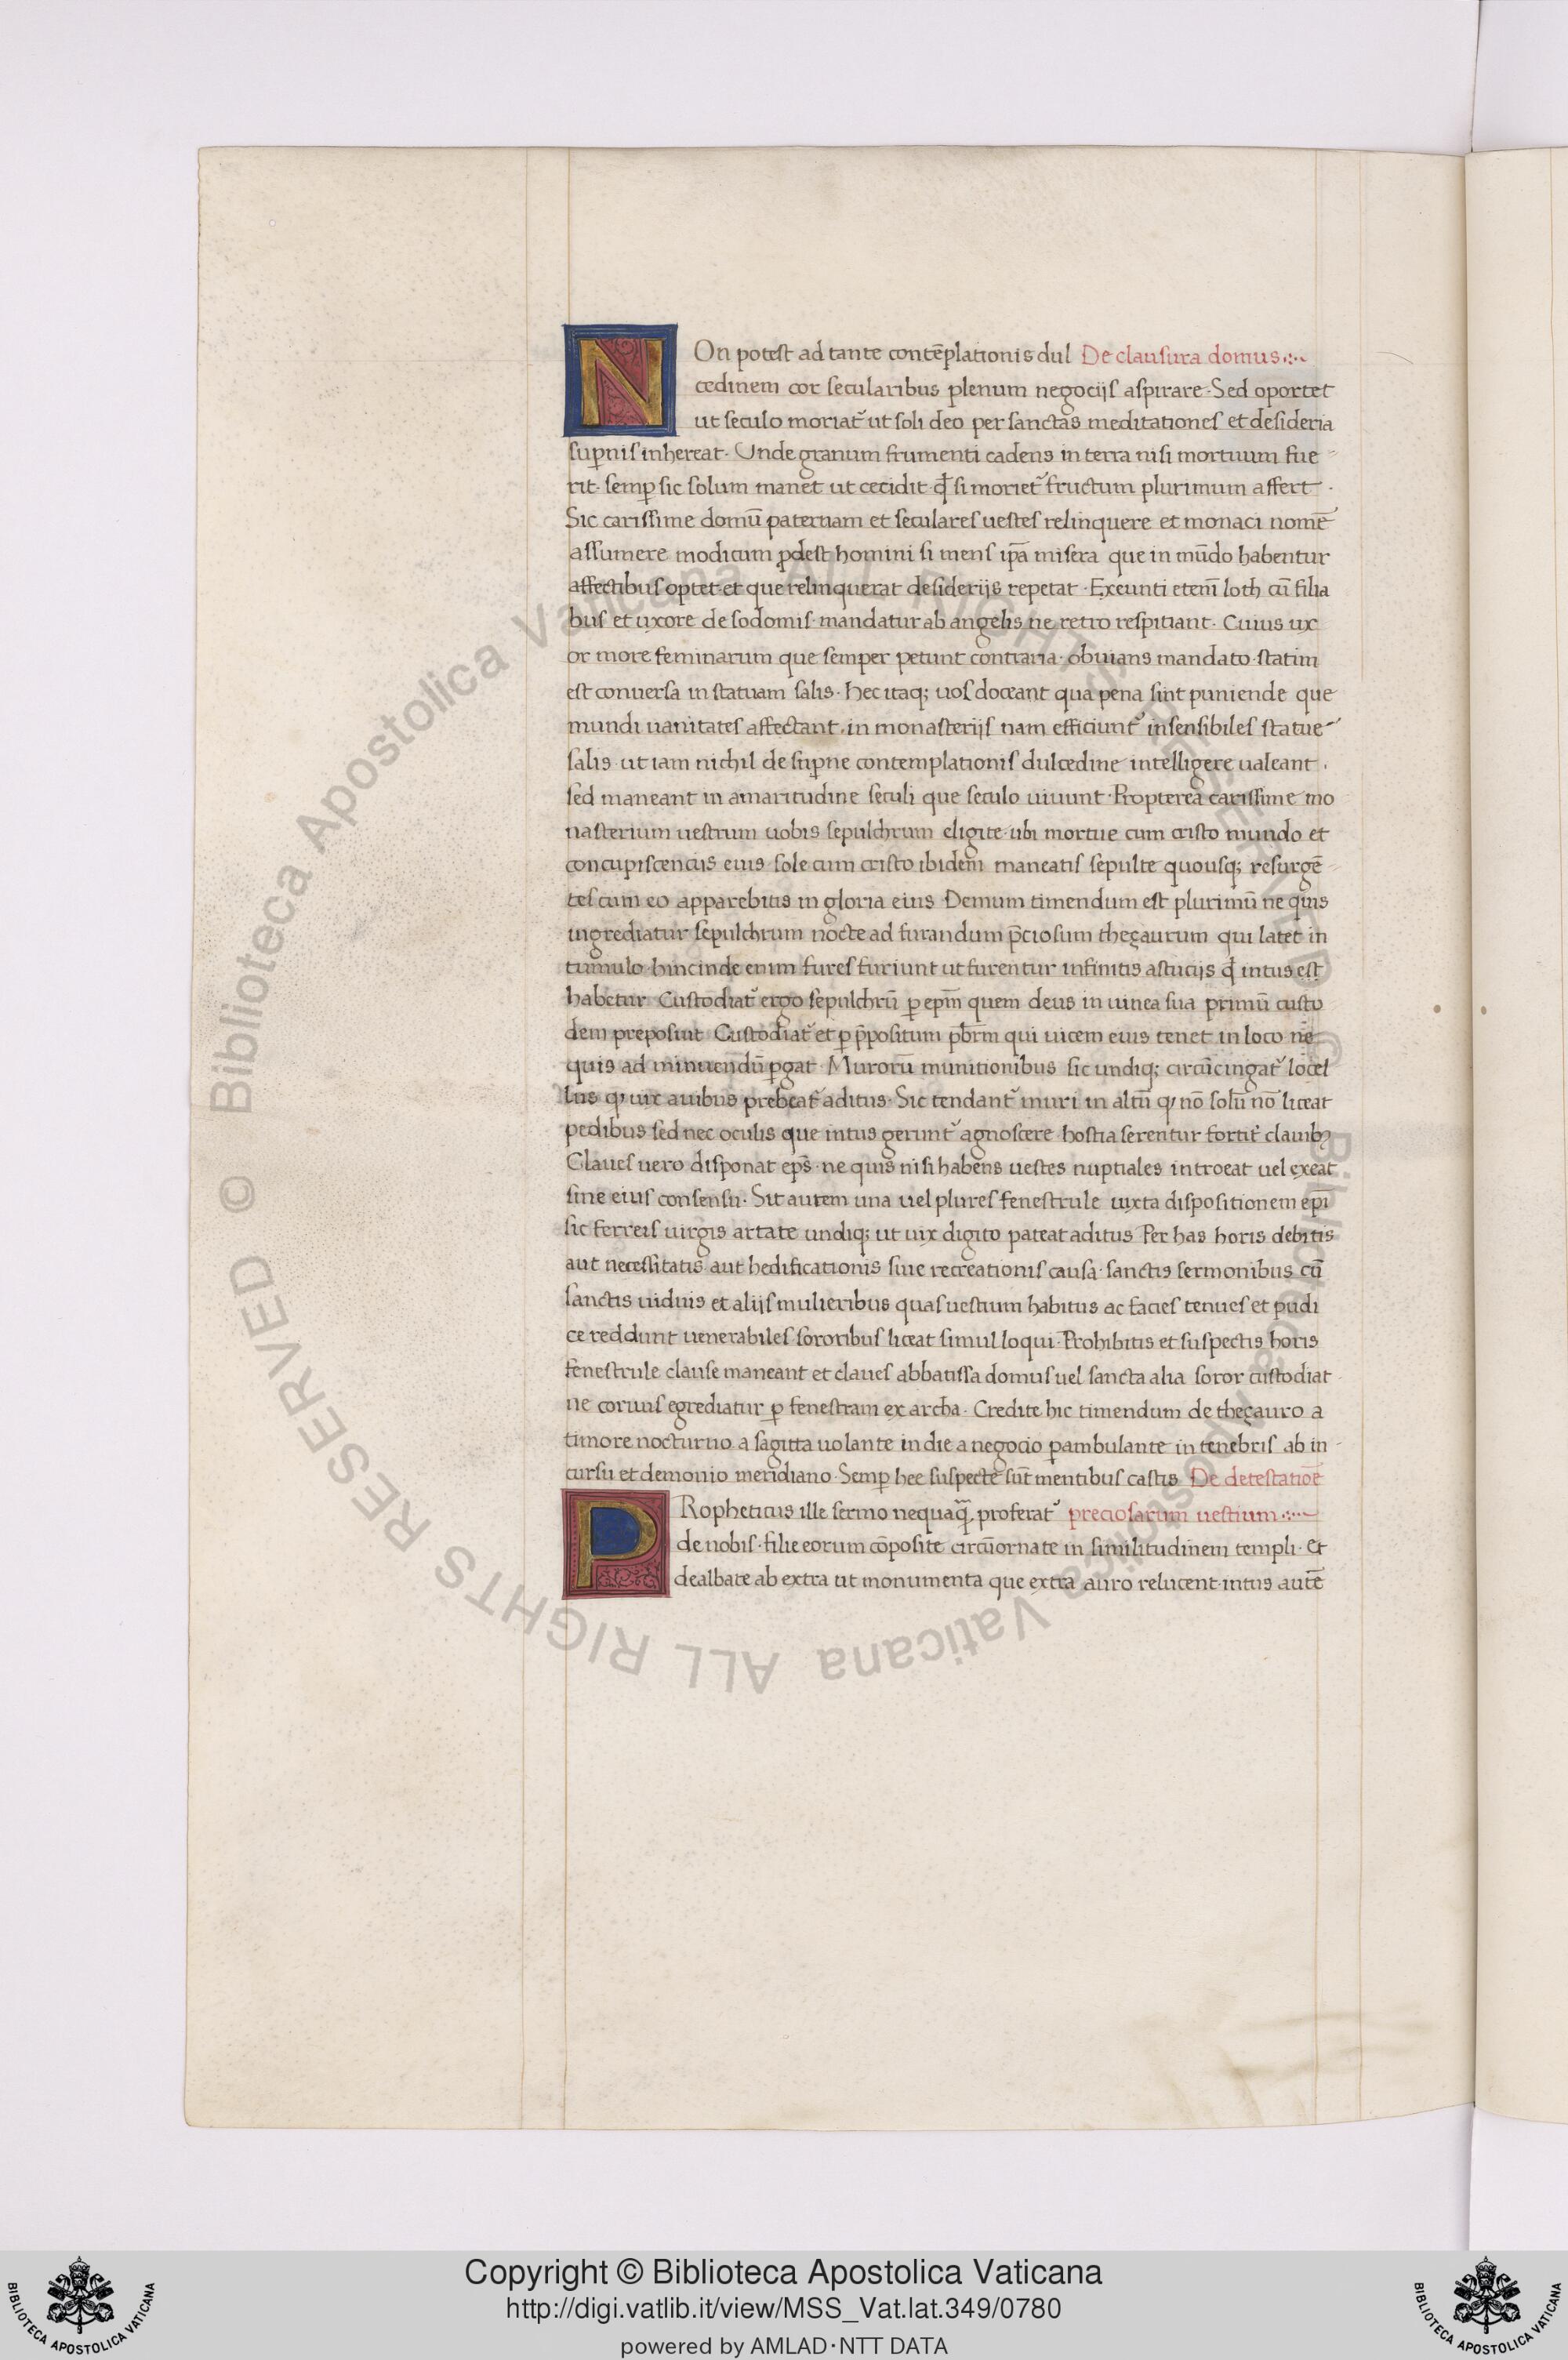 NOn potest ad tante contēplationis dul De clausura domus
cedinem cor secularibus plenum negocijs aspirare · Sed oportet
ut seculo moriat᷑ ut soli deo per sanctas meditationes et desideria
suꝑnis inhereat · Unde granum frumenti cadens in terra nisi mortuum fue
rit · semꝑ sic solum manet ut cecidit · qđ si moriet᷑ fructum plurimum affert ·
Sic carissime domū paternam et seculares uestes relinquere et monaci nomē
assumere modicum ꝓdest homini si mens ip̄a misera que in mūdo habentur
affectibus optet · et que relinquerat desiderijs repetat · Exeunti etenī loth cū filia
bus et uxore de sodomis · mandatur ab angelis ne retro respitiant · Cuius ux
or more feminarum que semper petunt contraria · obuians mandato statim
est conuersa in statuam salis · hec itaq; uos doceant qua pena sint puniende que
mundi uanitates affectant · in monasterijs nam efficiunt᷑ insensibiles statue
salis · ut iam nichil de suꝑne contemplationis dulcedine intelligere ualeant ·
sed maneant in amaritudine seculi que seculo uiuunt · Propterea carissime mo
nasterium uestrum uobis sepulchrum eligite · ubi mortue cum cristo mundo et
concupiscencijs eius · sole cum cristo ibidem maneatis sepulte quousq; resurgē
tes cum eo apparebitis in gloria eius · Demum timendum est plurimū ne quis
ingrediatur sepulchrum nocte ad furandum p̄ciosum thegaurum qui latet in
tumulo · hincinde enim fures furiunt ut furentur infinitis astucijs qđ intus est
habetur · Custodiat᷑ ergo sepulchrū ꝑ ep̄m quem deus in uinea sua primū custo
dem preposuit · Custodiat᷑ et ꝑ p̄positum pb̄rm qui uicem eius tenet in loco ne
quis ad minuendū ꝑgat · Murorū munitionibus sic undiq; circūcingat᷑ locel
lus qꝫ uix auibus prebeat᷑ aditus · Sic tendant᷑ muri in altū qꝫ nō solū nō liceat
pedibus sed nec oculis que intus gerunt᷑ agnoscere · hostia serentur fortit᷑ clauibꝫ
Claues uero disponat ep̄s · ne quis nisi habens uestes nuptiales introeat uel exeat
sine eius consensu · Sit autem una uel plures fenestrule iuxta dispositionem ep̄i
sic ferreis uirgis artate undiq; ut uix digito pateat aditus · Per has horis debitis
aut necessitatis aut hedificationis siue recreationis causa · sanctis sermonibus cū
sanctis uiduis et alijs mulieribus quas uestium habitus ac facies tenues et pudi
ce reddunt uenerabiles sororibus liceat simul loqui · Prohibitis et suspectis horis
fenestrule clause maneant et claues abbatissa domus uel sancta alia soror custodiat
ne coruus egrediatur ꝑ fenestram ex archa · Credite hic timendum de thegauro a
timore nocturno a sagitta uolante in die a negocio ꝑambulante in tenebris ab in
cursu et demonio meridiano · Semꝑ hee suspecte sūt mentibus castis De detestatiōe
PRopheticus ille sermo nequaq̄ꝫ proferat᷑ preciosarum uestium
de nobis · filie eorum cōposite circūornate in similitudinem templi · et
dealbate ab extra ut monumenta que extra auro relucent · intus autē
Biblioteca Apostolica Vaticana ALL RIGHTS RESERVED ©
Copyright © Biblioteca Apostolica Vaticana
http://digi.vatlib.it/view/MSS_Vat.lat.349/0780
powered by AMLAD·NTT DATA
BIBLIOTECA APOSTOLICA VATICANA
BIBLIOTECA APOSTOLICA VATICANA